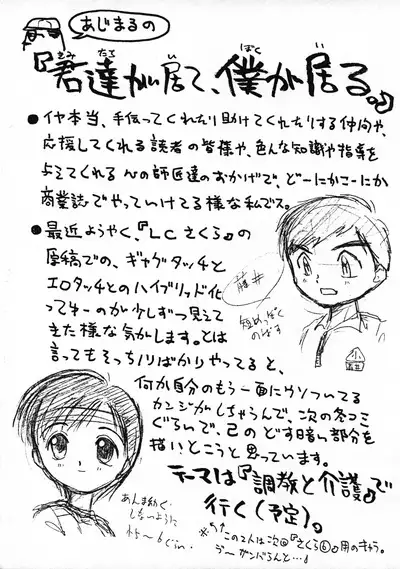 あじまるの
『君達が居て、僕が居る。』
きみ たち い ぼく い
●イヤ本当、手伝ってくれたり助けてくれたりする仲間や、
応援してくれる読者の皆様や、色んな知識や指導を
与えてくれる心の師匠達のおかげで、どーにかこーにか
商業誌でやっていけてる様な私でス。
●最近ようやく、『LCさくら』の
原稿での、ギャグタッチと
エロタッチとのハイブリッド化
ってゆーのが少しずつ見えて
きた様な気がします。とは
言ってもそっちバリばかりやってると、
何か自分のもう一面にウソついてる
カンジがしちゃうんで、次の冬コミ
ぐらいで、己のどす暗い部分を
描いとこうと思っています。
テーマは『調教と介護』で
行く(予定)。
藤井
短めっぽく
のばす
小
あんま幼く
しないように
※この2人は次回『さくら⑥』用のキャラ。